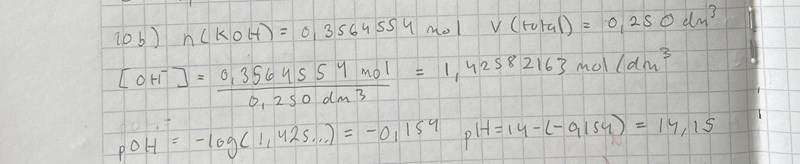 10b) n(KOH) = 0,3564554 mol V(total) = 0,250 dm³
[OH⁻] = 0,3564554 mol / 0,250 dm³ = 1,42582163 mol/dm³
pOH = -log(1,425...) = -0,154 pH = 14-(-0,154) = 14,15